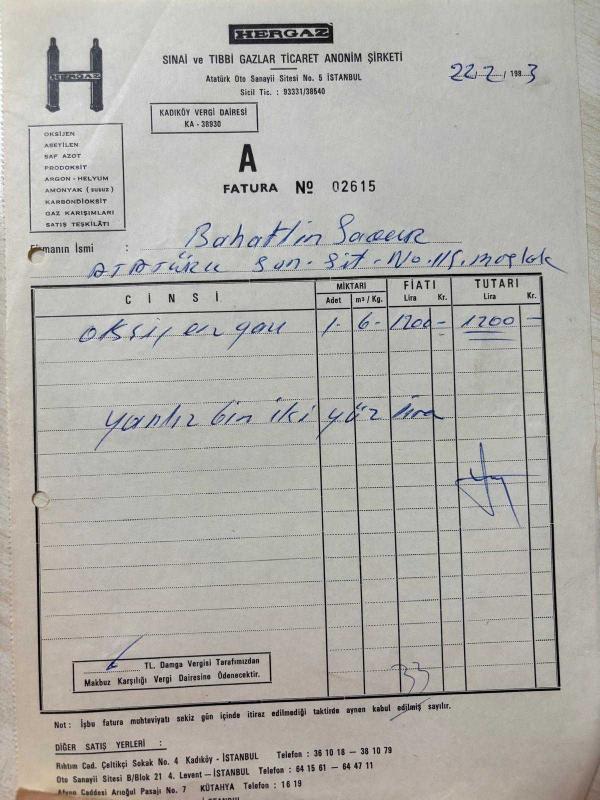 HERGAZ
SINAİ ve TIBBİ GAZLAR TİCARET ANONİM ŞİRKETİ
Atatürk Oto Sanayii Sitesi No. 5 İSTANBUL
Sicil Tic. : 93331/38540
22.2. / 1983
HERGAZ
KADIKÖY VERGİ DAİRESİ
KA - 38930
OKSİJEN
ASEYİLEN
SAF AZOT
PRODOKSİT
ARGON - HELYUM
AMONYAK (susuz)
KARBONDİOKSİT
GAZ KARIŞIMLARI
SATIŞ TEŞKİLÂTI
A
FATURA No 02615
Firmanın İsmi : Bahattin
ATATÜRK San. Sit. No. 115. maslak
CİNSİ MİKTARI FİATI TUTARI
Adet m³ / Kg. Lira Kr. Lira Kr.
OKSijen gazı 1- 6- 1200- 1200-
yanlız bin iki yüz lira
TL. Damga Vergisi Tarafımızdan
Makbuz Karşılığı Vergi Dairesine Ödenecektir.
33
Not : İşbu fatura muhteviyatı sekiz gün içinde itiraz edilmediği taktirde aynen kabul edilmiş sayılır.
DİĞER SATIŞ YERLERİ :
Rıhtım Cad. Çeltikçi Sokak No. 4 Kadıköy - İSTANBUL Telefon : 36 10 18 — 38 10 79
Oto Sanayii Sitesi B/Blok 21 4. Levent — İSTANBUL Telefon : 64 15 61 — 64 47 11
Afyon Caddesi Arıoğul Pasajı No. 7 KÜTAHYA Telefon : 16 19
İSTANBUL